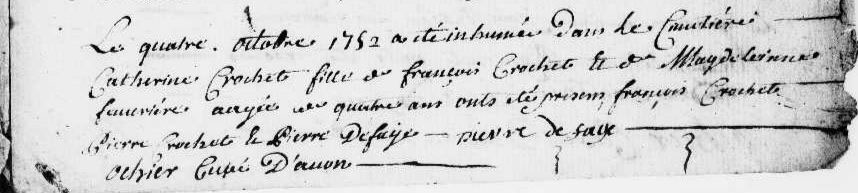 Le quatre. octobre 1752 a été inhumée dans le Cimetière
Catherine Crochet fille de françois Crochet et de Magdeleinne
feuvrière aagée de quatre ans onts été presens françois Crochet
Pierre Crochet et Pierre Defaye — pierre de faye
ochier Curé D'avon